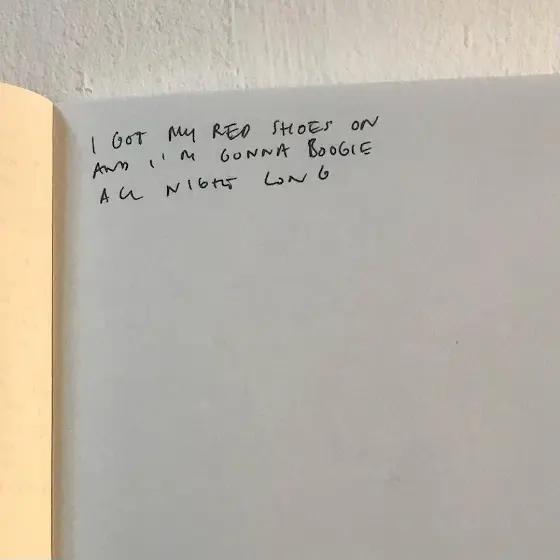 I GOT MY RED SHOES ON
AND I'M GONNA BOOGIE
ALL NIGHT LONG